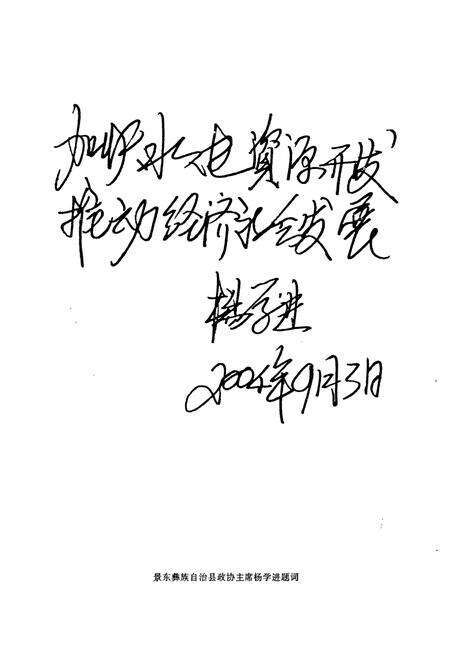 加快水电資源开发
推动经济社会发展
杨学进
2004年9月3日
景东彝族自治县政协主席杨学进题词